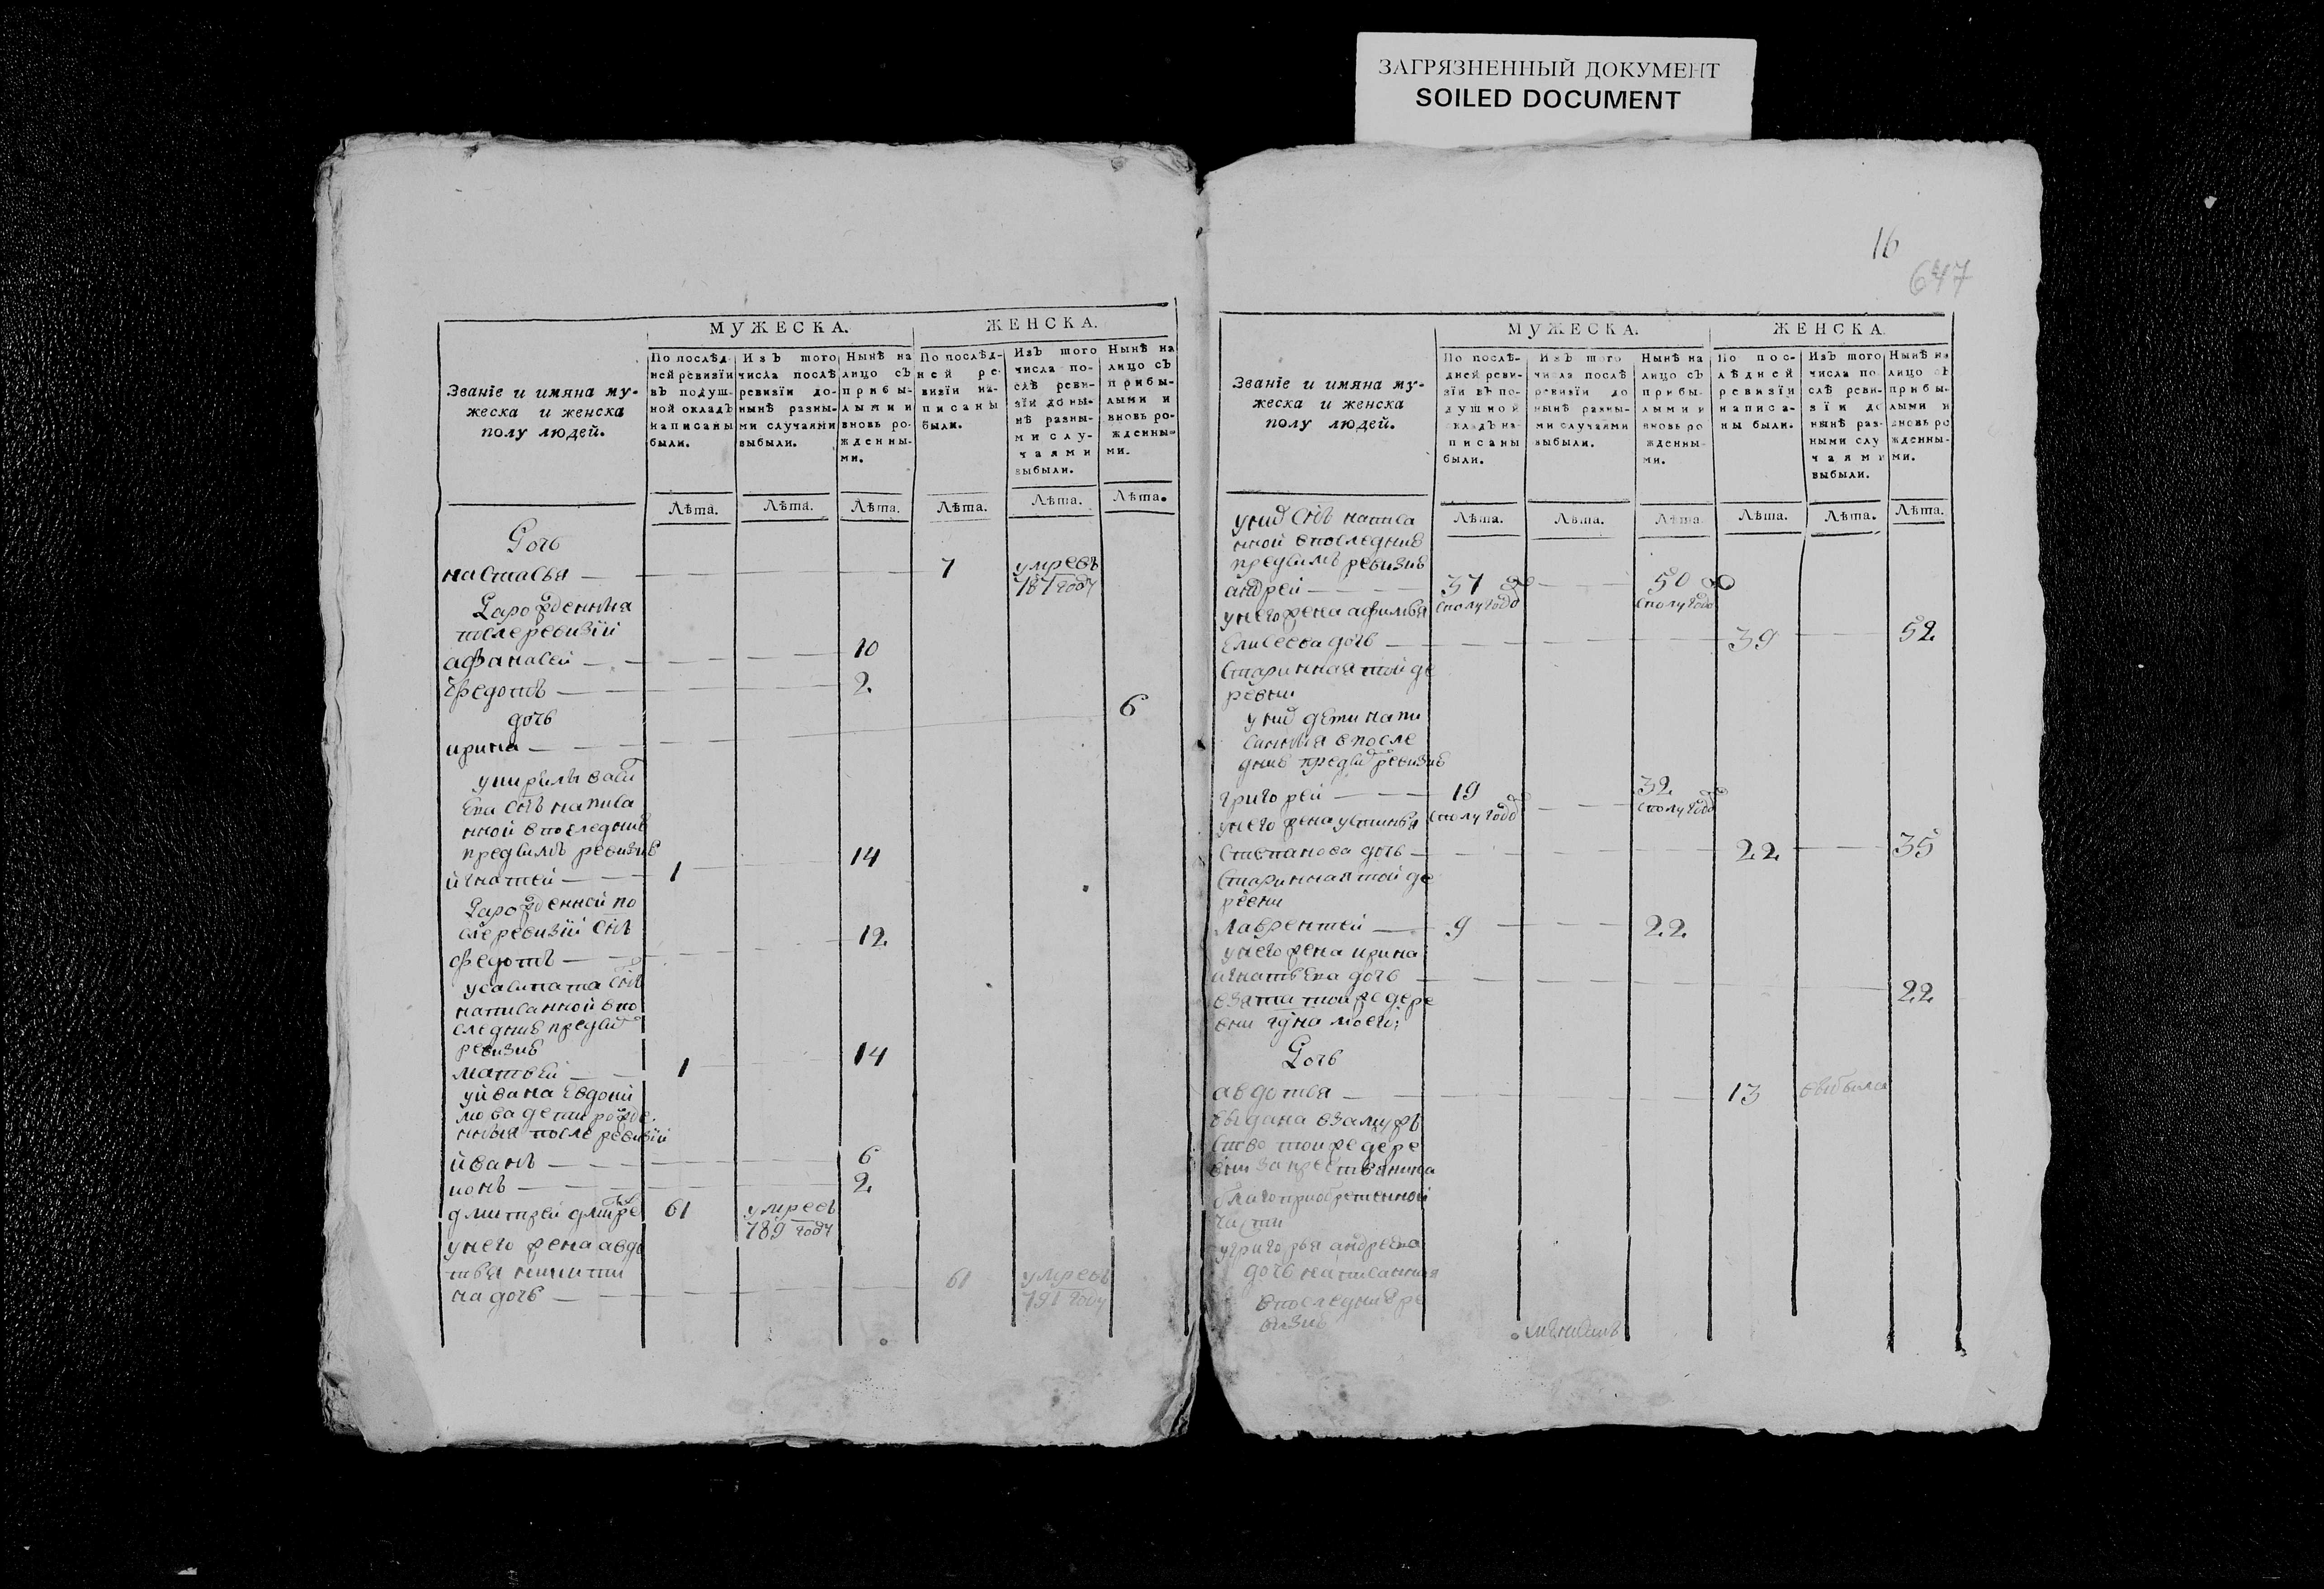 ЗАГРЯЗНЕННЫЙ ДОКУМЕНТ
SOILED DOCUMENT
МУЖЕСКА.
ЖЕНСКА.
Званіе и имяна му-
жеска и женска
полу людей.
По послѣд-
ней ревизїи
въ подуш-
ной окладъ
написаны
были.
Изъ того
числа послѣ
ревизїи до-
нынѣ разны-
ми случаями
выбыли.
Нынѣ на
лицо съ
прибы-
лыми и
вновь ро-
жденны-
ми.
По послѣд-
ней ре-
визїи на-
писаны
были.
Изъ того
числа по-
слѣ реви-
зїи доны-
нѣ разны-
ми слу-
чаями
выбыли.
Нынѣ на
лицо съ
прибы-
лыми и
вновь ро-
жденны-
ми.
Лѣта. Лѣта. Лѣта. Лѣта. Лѣта. Лѣта.
Дочь
настасья 7 умреъ
787 году
Рарожденныя
после ревизїи
афанасей 10
федотъ 2
дочь 6
ирина
нной впоследние
ревизие
игнатей 1 14
Рарожденной по
сле ревизїи снъ
федотъ 12
написанной впо
следние
ревизие
матвей 1 14
уивана евдоки
мова дети рожде
нныя после ревизїи
иванъ 6
ионъ 2
дмитрей 61 умреъ
789 году
унего жена авдо
тья никити
на дочь 61 умреъ
791 году
16
647
МУЖЕСКА.
ЖЕНСКА.
Званіе и имяна му-
жеска и женска
полу людей.
По послѣ-
дней реви-
зїи въ по-
душной
окладъ на-
писаны
были.
Изъ того
числа послѣ
ревизїи до
нынѣ разны-
ми случаями
выбыли.
Нынѣ на
лицо съ
прибы-
лыми и
вновь ро
жденны-
ми.
По пос-
лѣдней
ревизїи
написа-
ны были.
Изъ того
числа по
слѣ реви-
зїи до
нынѣ раз-
ными слу
чаями
выбыли.
Нынѣ на
лицо съ
прибы-
лыми и
вновь ро
жденны-
ми.
Лѣта. Лѣта. Лѣта. Лѣта. Лѣта. Лѣта.
уних снъ написа
нной впоследние
ревизие
андрей 37 50
сполугодо сполугодо
унего жена афимья
елисеева дочь 39 52
старинная той де
ревни
уних дети напи
санныя впосле
дние ревизие
григорей 19 32
сполугодо сполугодо
унего жена устинья
степанова дочь 22 35
старинная той де
ревни
лаврентей 9 22
унего жена ирина
игнатьева дочь 22
взята той же дере
вни
Дочь
авдотья 13
выдана взамуж
ство той же дере
вни за крестьянина
благоприобретенной
части
угригорья андреева
дочь написанная
впоследние ре
визие